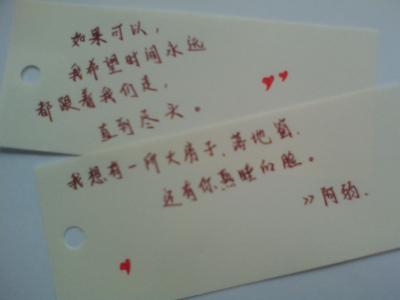 如果可以，
我希望时间永远
都跟着我们走，
直到尽头。
我想有一所大房子、落地窗、
还有你熟睡的脸。
>> 阿狗.